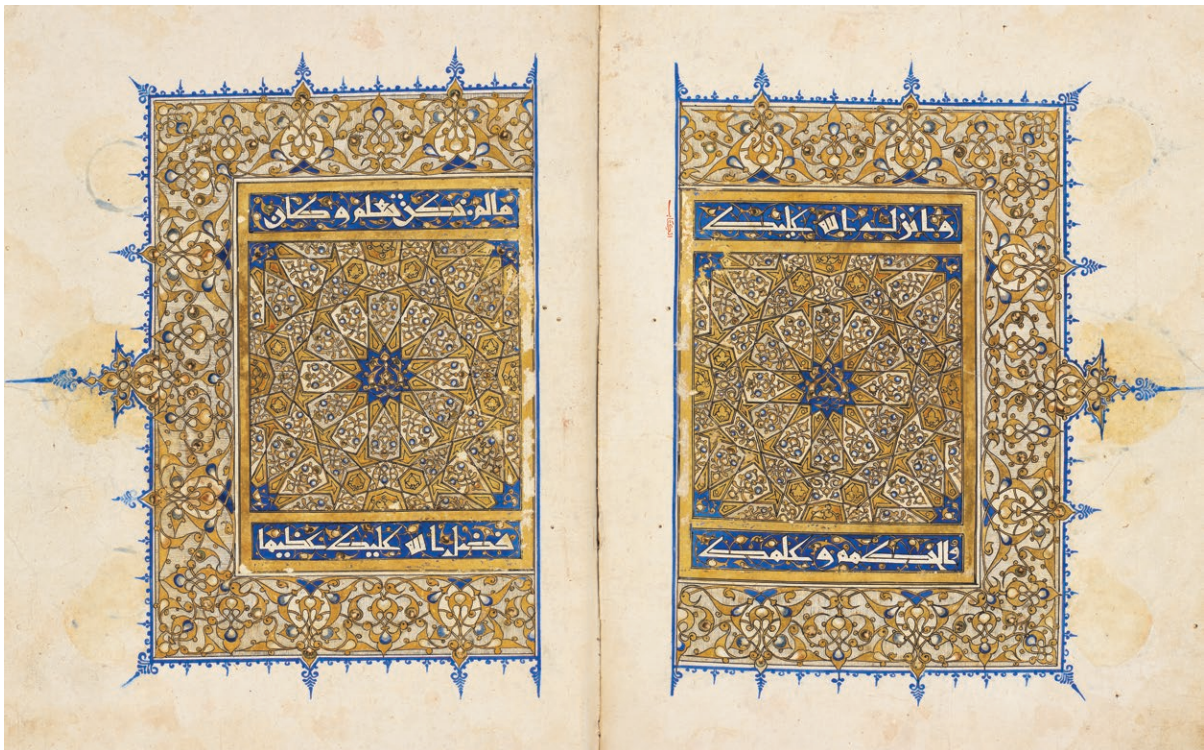 وانزل الله عليك
الكتاب
والحكمه وعلمك
مالم تكن تعلم وكان
فضل الله عليك عظيما